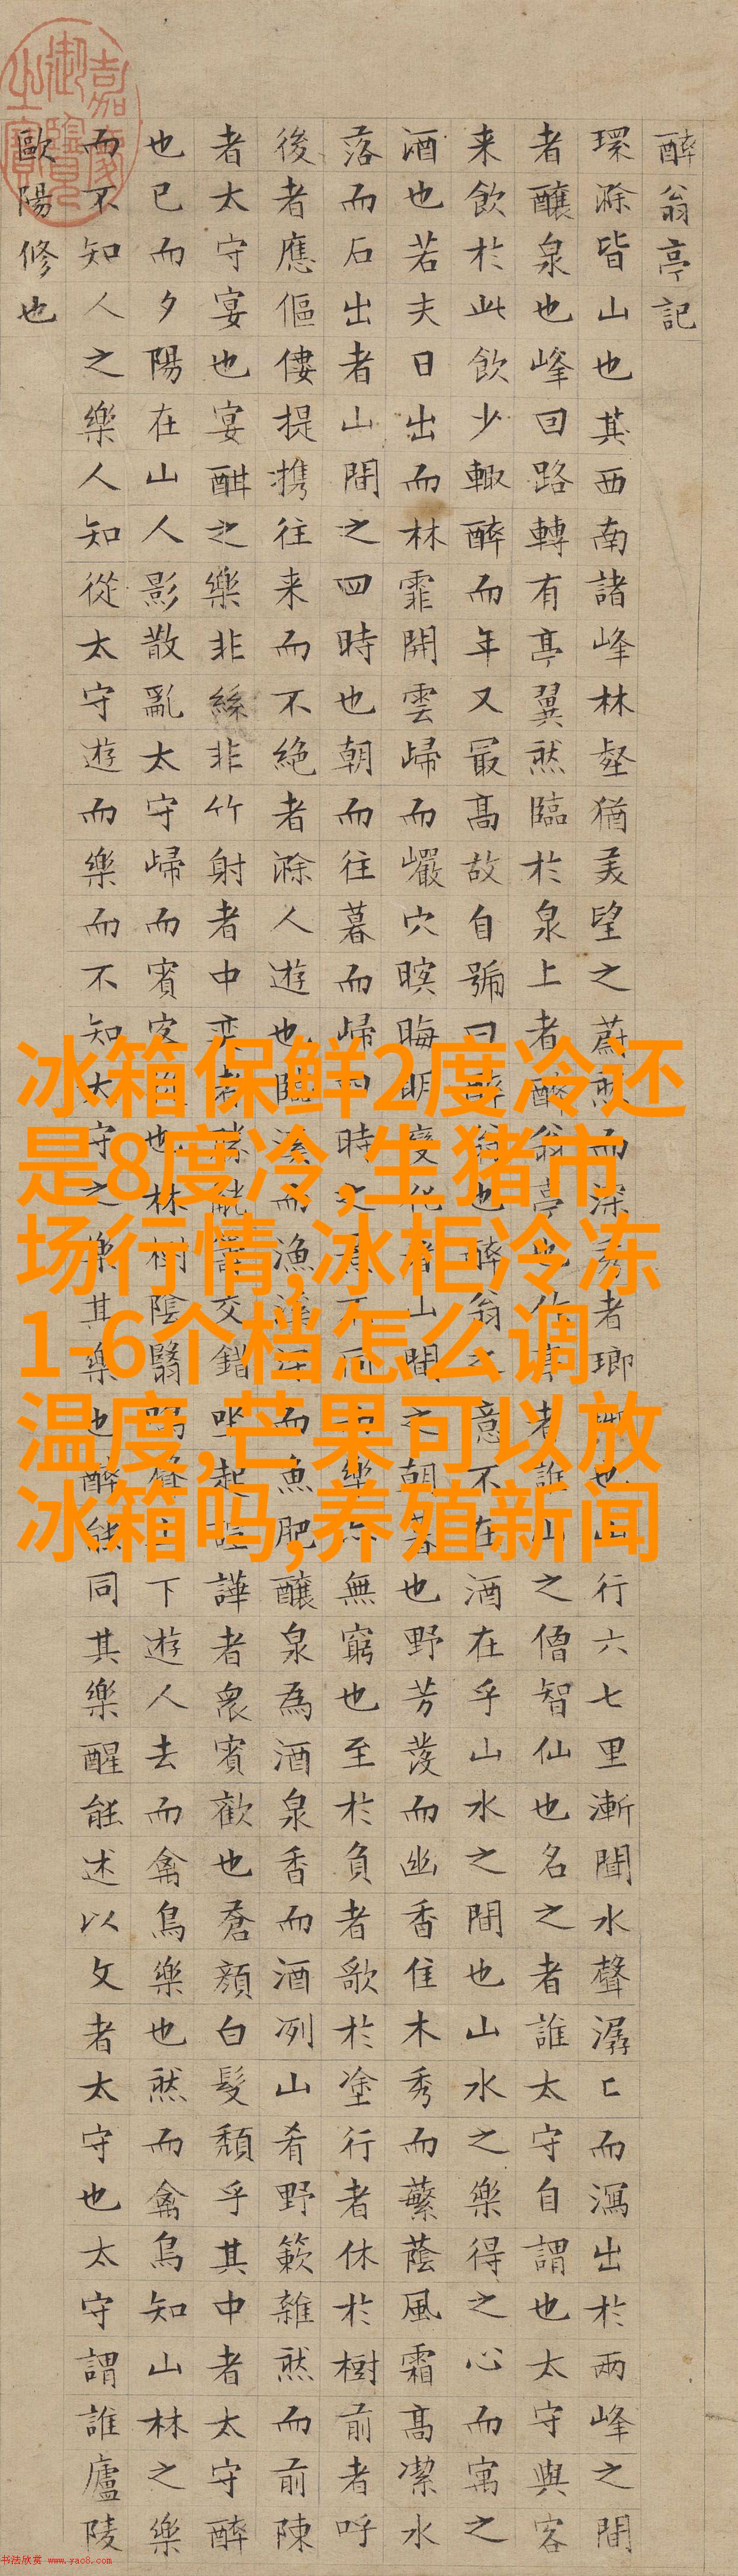 醉翁亭記
環滁皆山也其西南諸峰林壑猶美望之蔚然而深秀者瑯琊也山行六七里漸聞水聲潺〻而瀉出於兩峰之間
者釀泉也峰回路轉有亭翼然臨於泉上者醉翁亭也作亭者誰山之僧智仙也名之者誰太守自謂也太守與客
来飲於此飲少輒醉而年又最高故自號曰醉翁也醉翁之意不在酒在乎山水之間也山水之樂得之心而寓之
酒也若夫日出而林霏開雲歸而巖穴暝晦明變化者山間之朝暮也野芳發而幽香佳木秀而蘩蔭風霜高潔水
落而石出者山間之四時也朝而往暮而歸四時之景不同而樂亦無窮也至於負者歌於塗行者休於樹前者呼
後者應傴僂提攜往来而不絶者滁人遊也臨溪而漁溪深而魚肥釀泉為酒泉香而酒冽山肴野簌雜然而前陳
者太守宴也宴酣之樂非絲非竹射者中奕者勝觥籌交錯坐起諠譁者衆賓歡也蒼顏白髮頹乎其中者太守醉
也已而夕陽在山人影散亂太守歸而賓客從也林樹陰翳鳴聲上下遊人去而禽鳥樂也然而禽鳥知山林之樂
而不知人之樂人知從太守遊而樂而不知太守之樂其樂也醉能同其樂醒能述以文者太守也太守謂誰廬陵
歐陽修也
嘉慶御覽之寶
冰箱保鲜2度冷还
是8度冷,生猪市
场行情,冰柜冷冻
1-6个档怎么调
温度,芒果可以放
冰箱吗,养殖新闻
书法欣赏 www.yac8.com